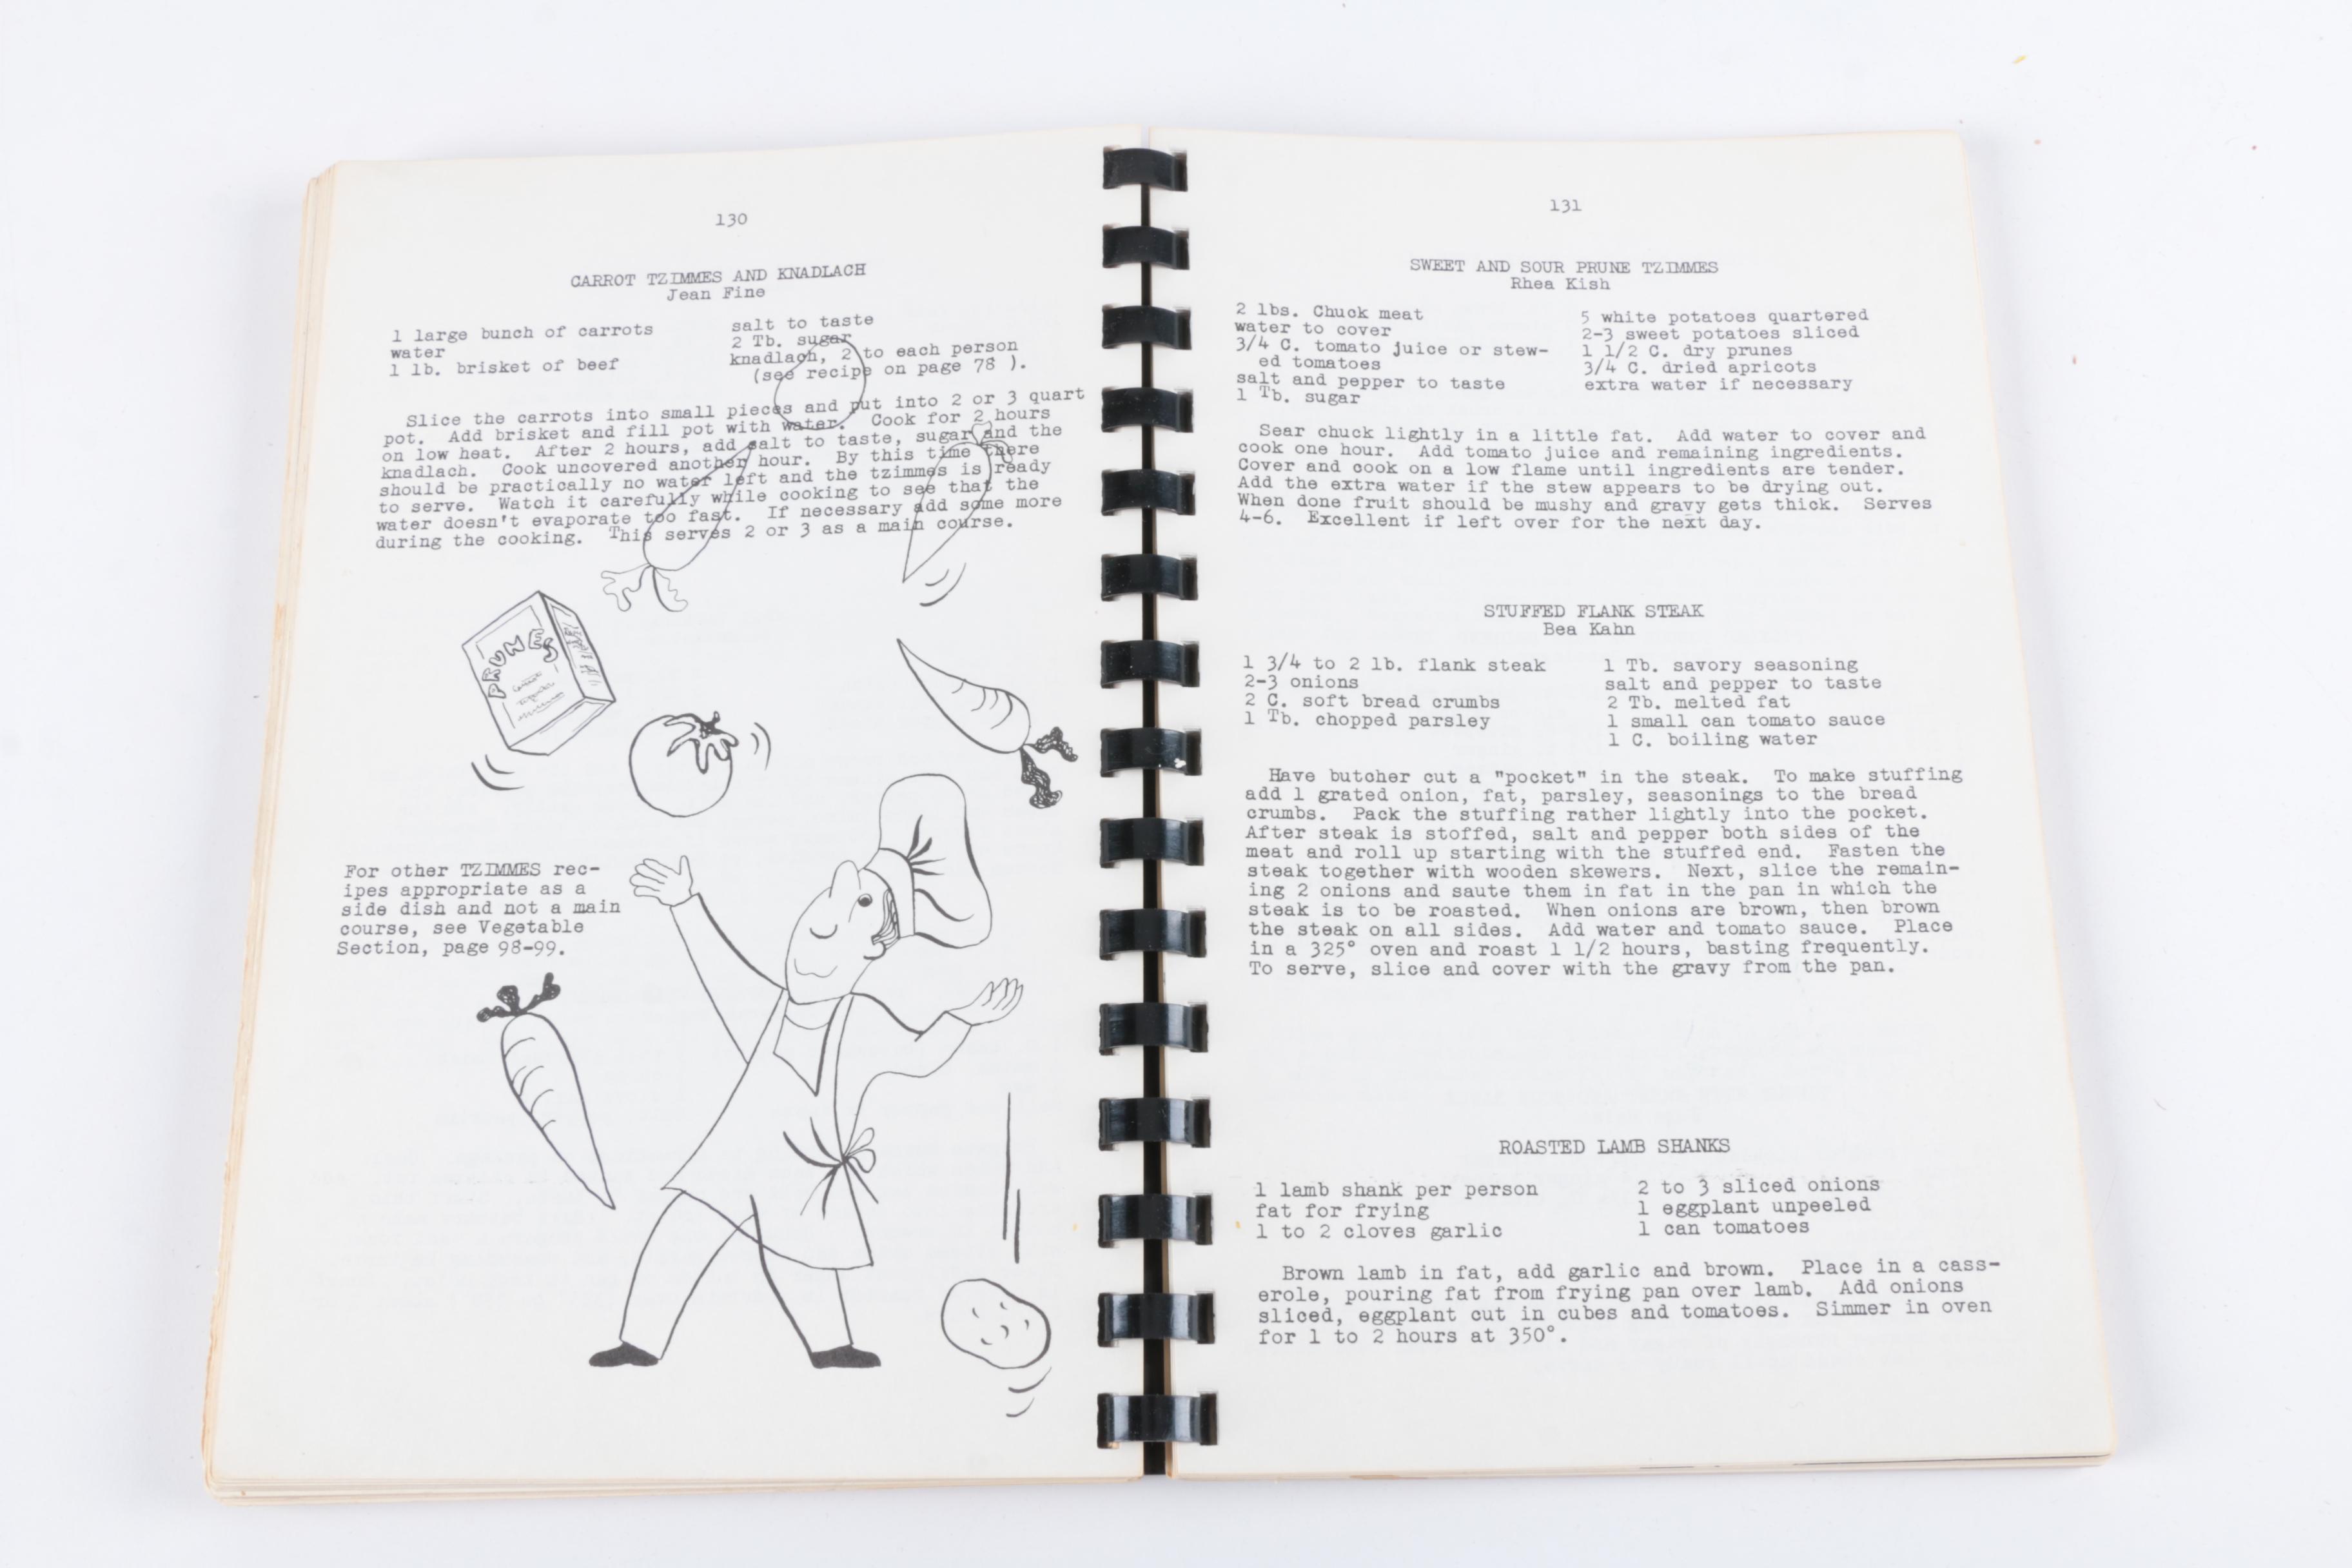 130
CARROT TZIMMES AND KNADLACH
Jean Fine
1 large bunch of carrots
water
1 lb. brisket of beef
salt to taste
2 Tb. sugar
knadlach, 2 to each person
(see recipe on page 78 ).
Slice the carrots into small pieces and put into 2 or 3 quart
pot. Add brisket and fill pot with water. Cook for 2 hours
on low heat. After 2 hours, add salt to taste, sugar and the
knadlach. Cook uncovered another hour. By this time there
should be practically no water left and the tzimmes is ready
to serve. Watch it carefully while cooking to see that the
water doesn't evaporate too fast. If necessary add some more
during the cooking. This serves 2 or 3 as a main course.
PRUNES
For other TZIMMES rec-
ipes appropriate as a
side dish and not a main
course, see Vegetable
Section, page 98-99.
131
SWEET AND SOUR PRUNE TZIMMES
Rhea Kish
2 lbs. Chuck meat
water to cover
3/4 C. tomato juice or stew-
ed tomatoes
salt and pepper to taste
1 Tb. sugar
5 white potatoes quartered
2-3 sweet potatoes sliced
1 1/2 C. dry prunes
3/4 C. dried apricots
extra water if necessary
Sear chuck lightly in a little fat. Add water to cover and
cook one hour. Add tomato juice and remaining ingredients.
Cover and cook on a low flame until ingredients are tender.
Add the extra water if the stew appears to be drying out.
When done fruit should be mushy and gravy gets thick. Serves
4-6. Excellent if left over for the next day.
STUFFED FLANK STEAK
Bea Kahn
1 3/4 to 2 lb. flank steak
2-3 onions
2 C. soft bread crumbs
1 Tb. chopped parsley
1 Tb. savory seasoning
salt and pepper to taste
2 Tb. melted fat
1 small can tomato sauce
1 C. boiling water
Have butcher cut a "pocket" in the steak. To make stuffing
add 1 grated onion, fat, parsley, seasonings to the bread
crumbs. Pack the stuffing rather lightly into the pocket.
After steak is stoffed, salt and pepper both sides of the
meat and roll up starting with the stuffed end. Fasten the
steak together with wooden skewers. Next, slice the remain-
ing 2 onions and saute them in fat in the pan in which the
steak is to be roasted. When onions are brown, then brown
the steak on all sides. Add water and tomato sauce. Place
in a 325° oven and roast 1 1/2 hours, basting frequently.
To serve, slice and cover with the gravy from the pan.
ROASTED LAMB SHANKS
1 lamb shank per person
fat for frying
1 to 2 cloves garlic
2 to 3 sliced onions
1 eggplant unpeeled
1 can tomatoes
Brown lamb in fat, add garlic and brown. Place in a cass-
erole, pouring fat from frying pan over lamb. Add onions
sliced, eggplant cut in cubes and tomatoes. Simmer in oven
for 1 to 2 hours at 350°.